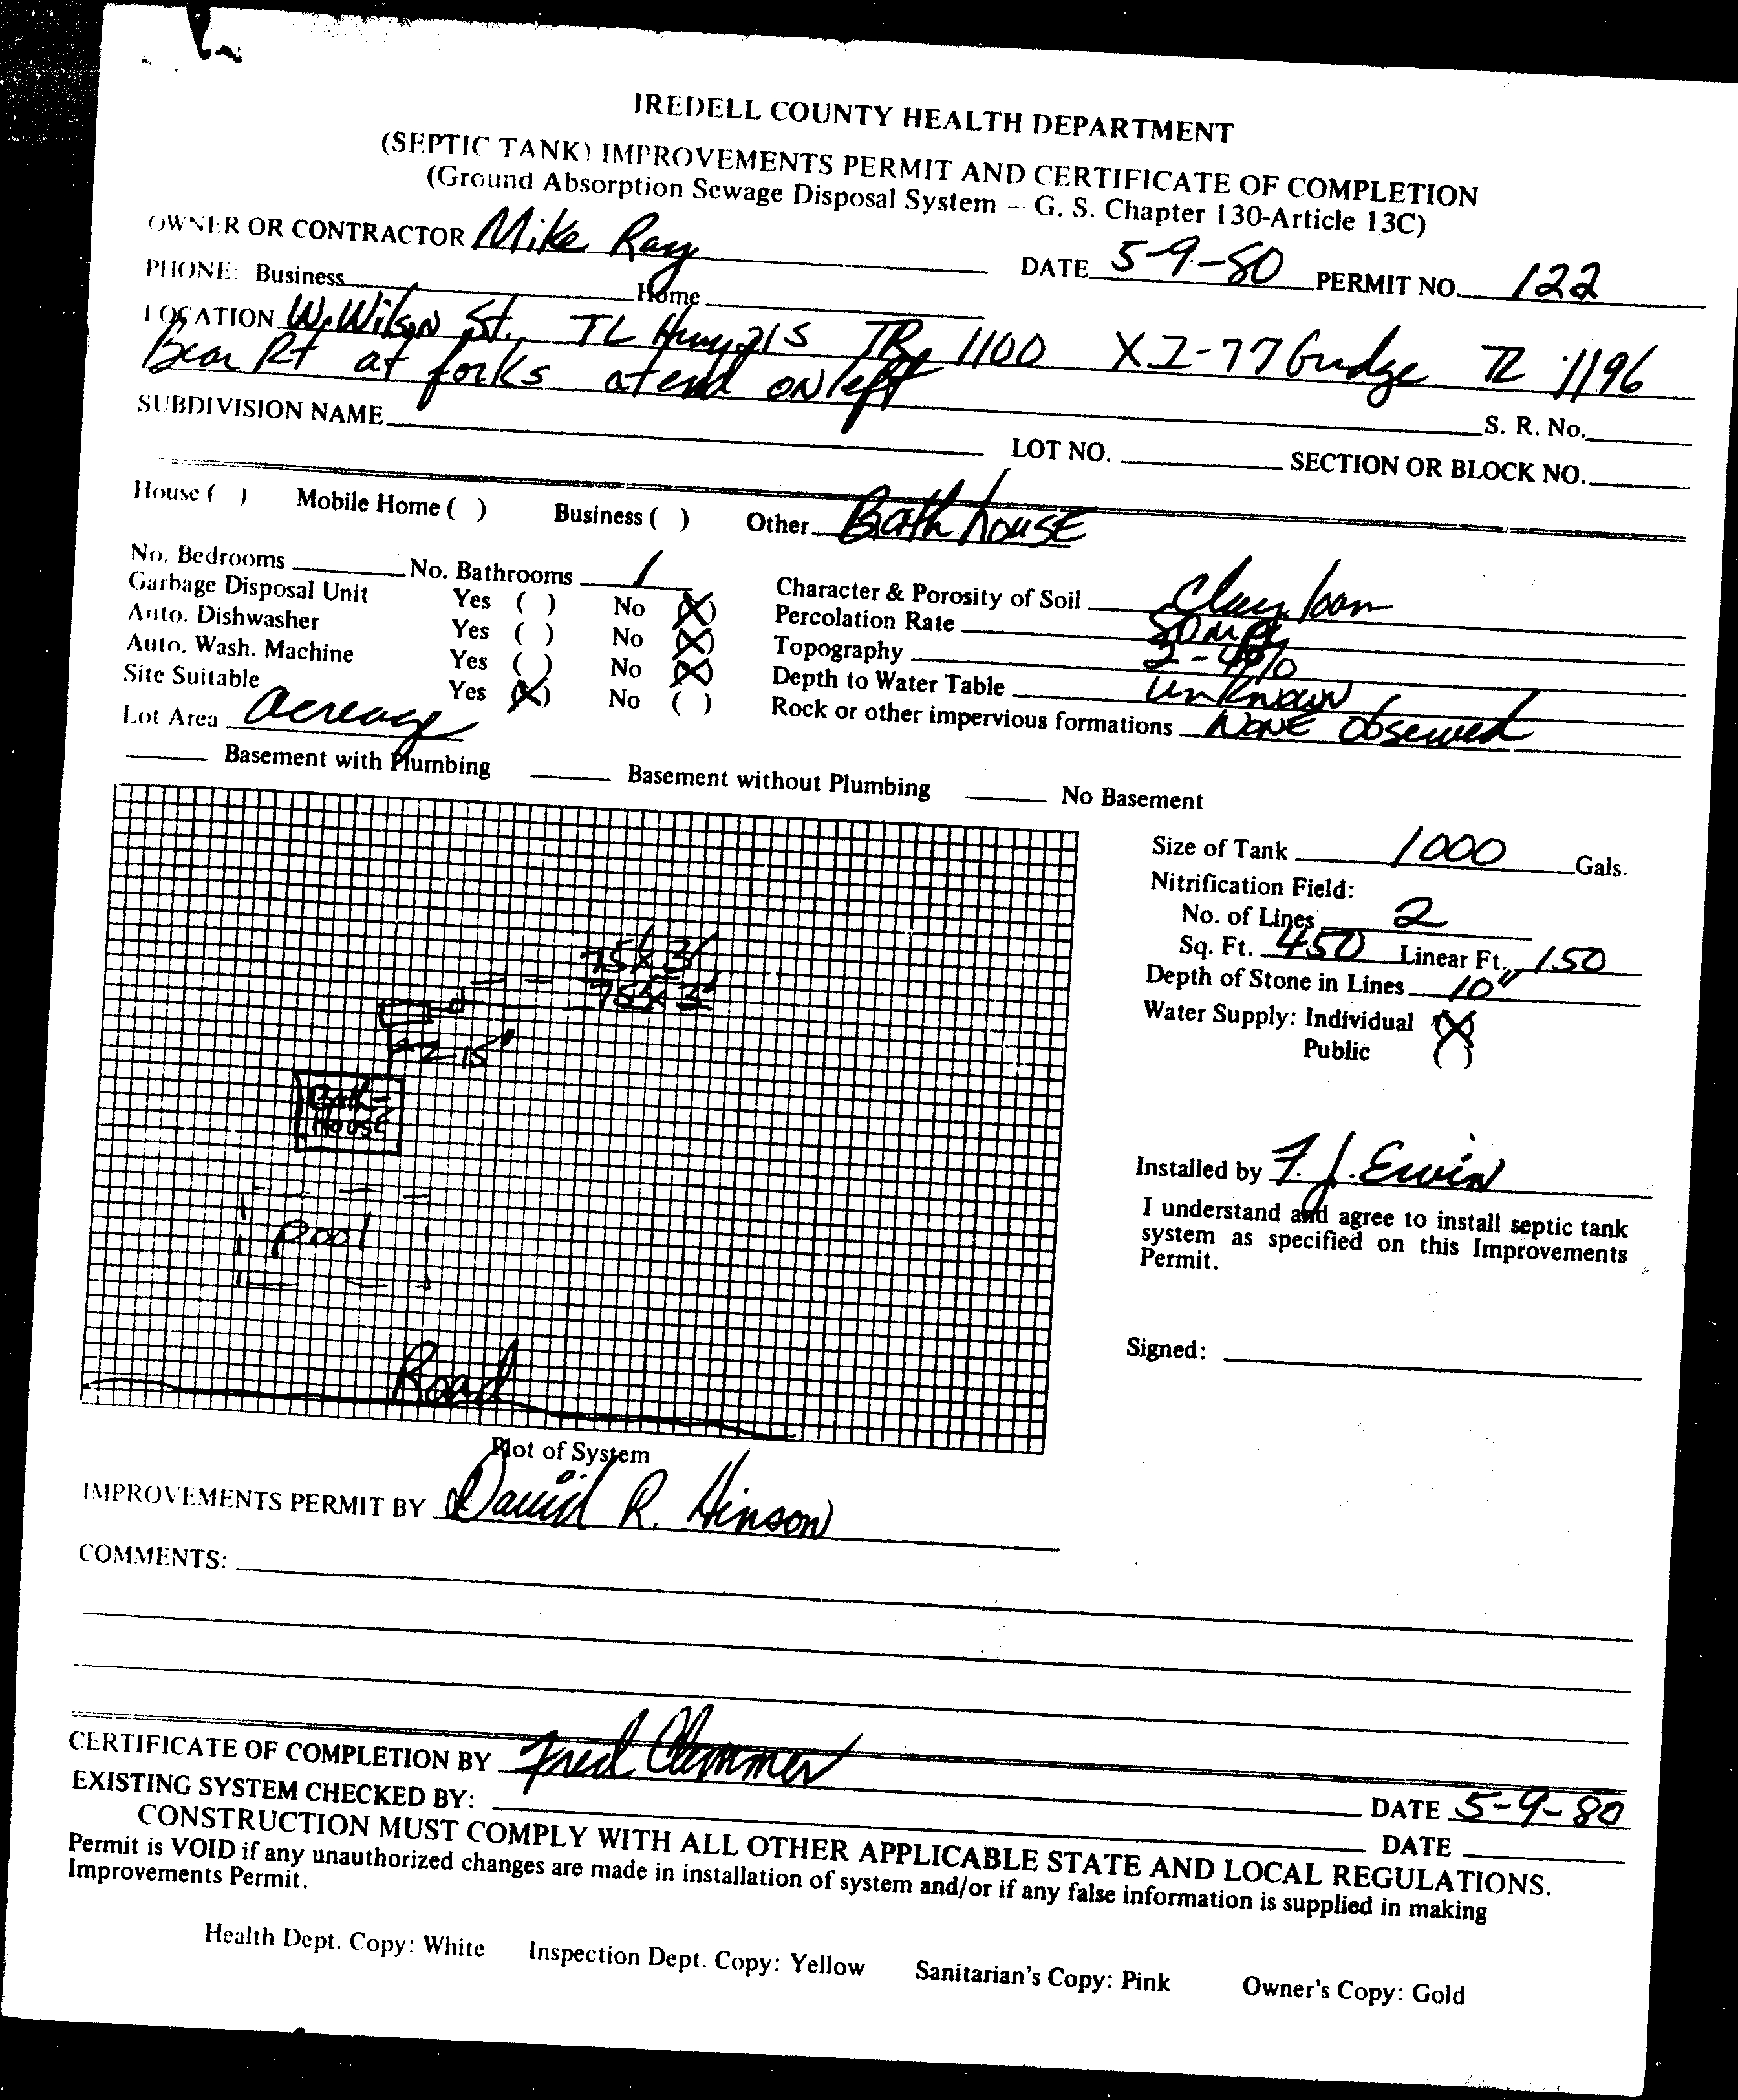 IREDELL COUNTY HEALTH DEPARTMENT
(SEPTIC TANK) IMPROVEMENTS PERMIT AND CERTIFICATE OF COMPLETION
(Ground Absorption Sewage Disposal System — G. S. Chapter 130-Article 13C)
OWNER OR CONTRACTOR Mike Ray DATE 5-9-80 PERMIT NO. 122
PHONE: Business Home
LOCATION W. Wilson St. TL Hwy 21S TR 1100 X I-77 Bridge TL 1196
Bear Rt at forks at end on left S. R. No.
SUBDIVISION NAME LOT NO. SECTION OR BLOCK NO.
House ( ) Mobile Home ( ) Business ( ) Other Bath house
No. Bedrooms No. Bathrooms 1
Garbage Disposal Unit Yes ( ) No (X)
Auto. Dishwasher Yes ( ) No (X)
Auto. Wash. Machine Yes ( ) No (X)
Site Suitable Yes (X) No ( )
Lot Area acreage
Character & Porosity of Soil Clay loam
Percolation Rate
Topography 2-4%
Depth to Water Table unknown
Rock or other impervious formations NONE observed
Basement with Plumbing Basement without Plumbing No Basement
75'x3'
75'x3'
15'
Bath-
House
Pool
Road
Plot of System
Size of Tank 1000 Gals.
Nitrification Field:
No. of Lines 2
Sq. Ft. 450 Linear Ft. 150
Depth of Stone in Lines 10"
Water Supply: Individual (X)
Public ( )
Installed by F. J. Erwin
I understand and agree to install septic tank
system as specified on this Improvements
Permit.
Signed:
IMPROVEMENTS PERMIT BY David R. Hinson
COMMENTS:
CERTIFICATE OF COMPLETION BY Fred Clemmer DATE 5-9-80
EXISTING SYSTEM CHECKED BY: DATE
CONSTRUCTION MUST COMPLY WITH ALL OTHER APPLICABLE STATE AND LOCAL REGULATIONS.
Permit is VOID if any unauthorized changes are made in installation of system and/or if any false information is supplied in making
Improvements Permit.
Health Dept. Copy: White Inspection Dept. Copy: Yellow Sanitarian's Copy: Pink Owner's Copy: Gold